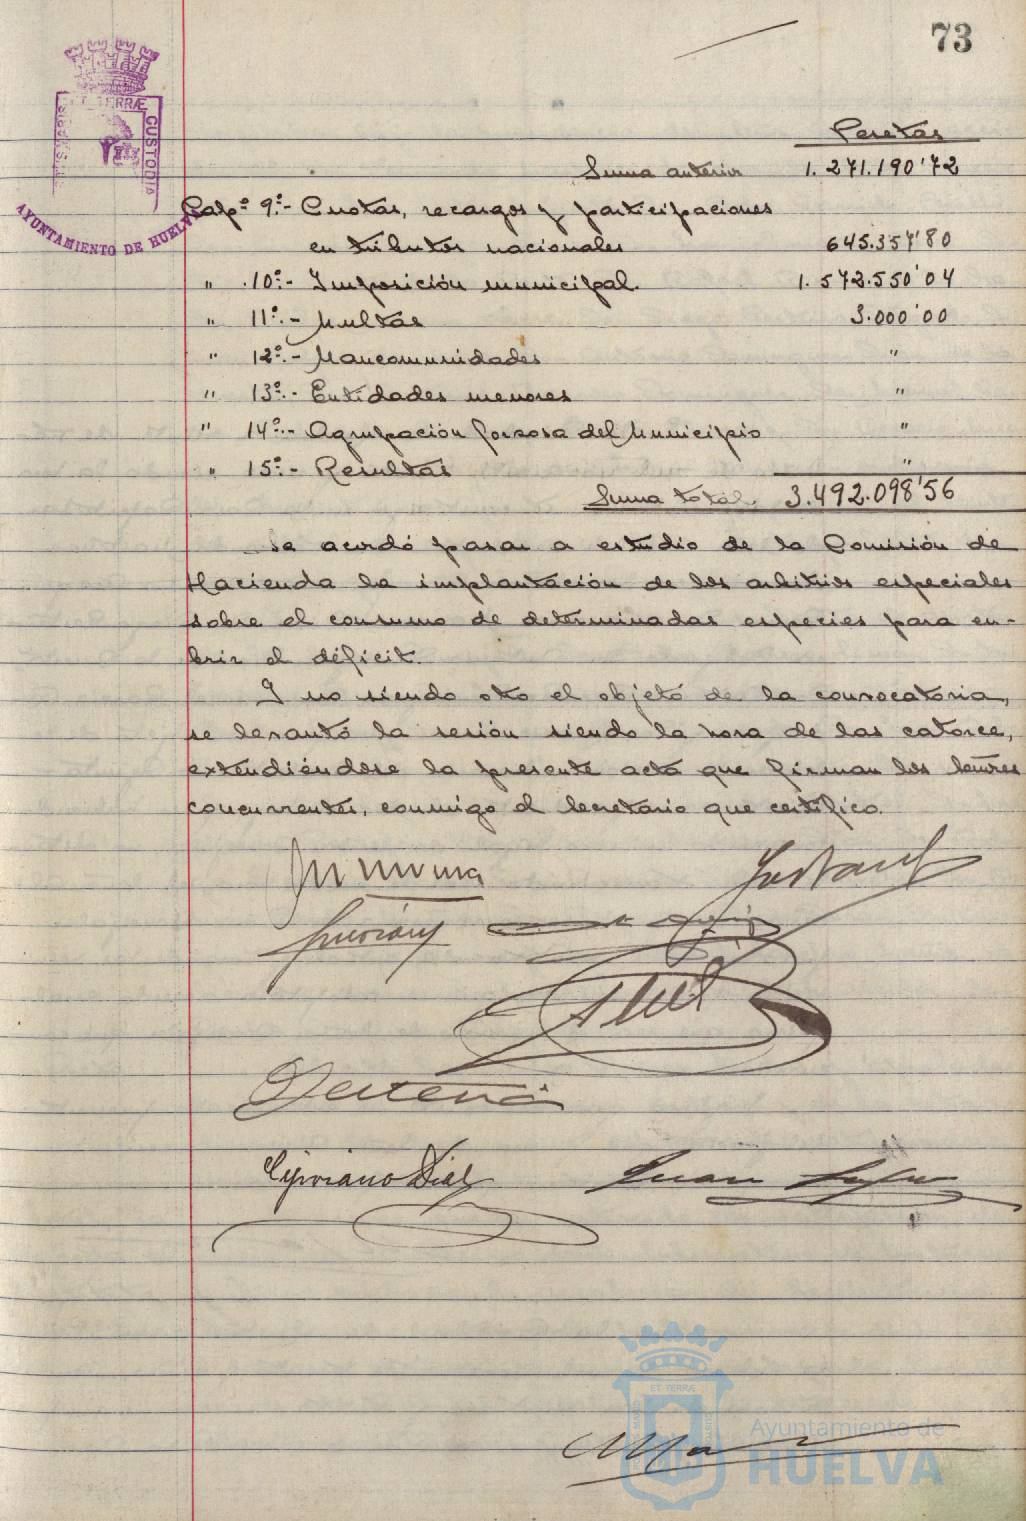 73
ET TERRÆ
CUSTODIA
AYUNTAMIENTO DE HUELVA
Pesetas
Suma anterior 1.271.190'72
Capº 9º.- Cuotas, recargos y participaciones
en tributos nacionales 645.357'80
" 10º.- Imposición municipal. 1.572.550'04
" 11º.- Multas 3.000'00
" 12º.- Mancomunidades "
" 13º.- Entidades menores "
" 14º.- Agrupación forzosa del Municipio "
" 15º.- Resultas "
Suma total. 3.492.098'56
Se acordó pasar a estudio de la Comisión de
Hacienda la implantación de los arbitrios especiales
sobre el consumo de determinadas especies para cu-
brir el déficit.
Y no siendo otro el objeto de la convocatoria,
se levantó la sesión siendo la hora de las catorce,
extendiéndose la presente acta que firman los Señores
concurrentes, conmigo el Secretario que certifico.
Cipriano Diaz Juan
ET TERRÆ
Ayuntamiento de
HUELVA